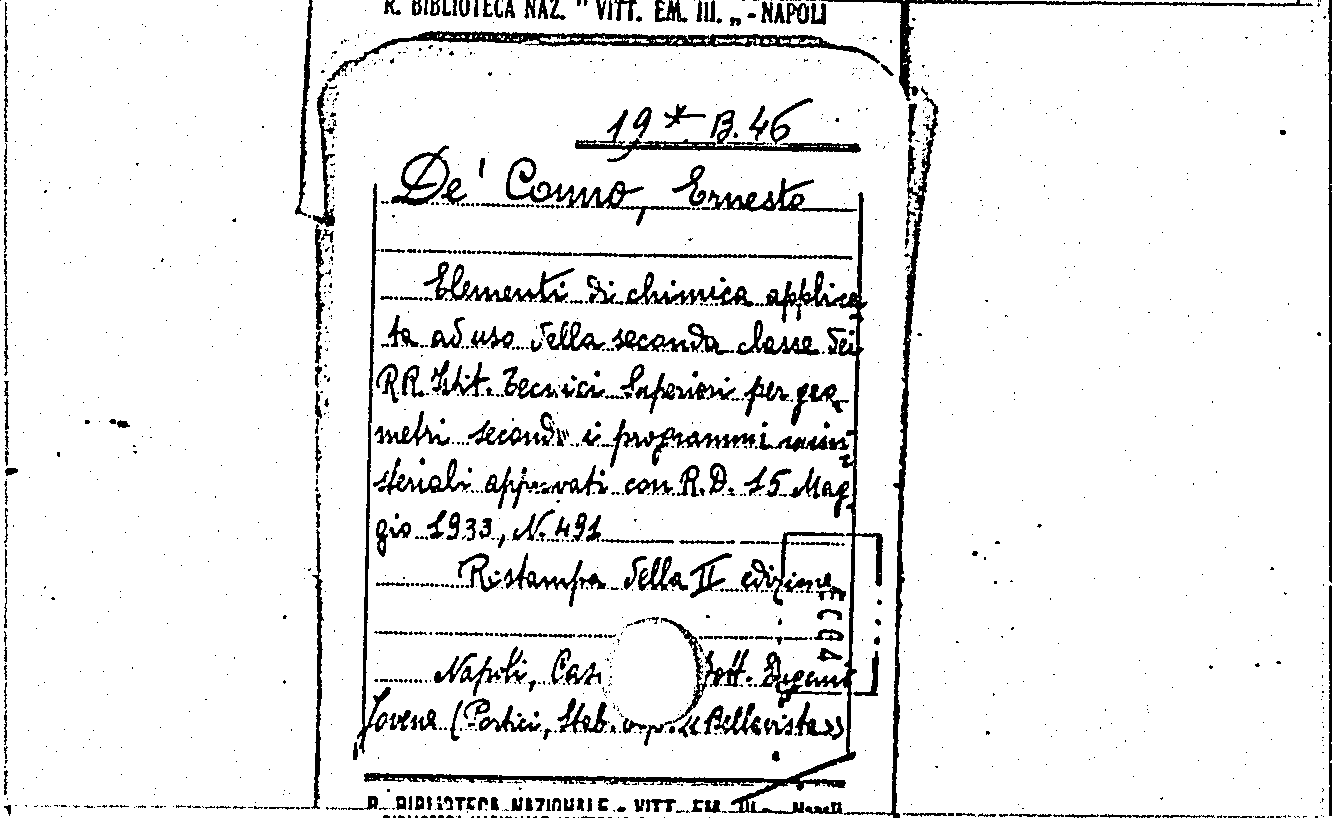 R. BIBLIOTECA NAZ. " VITT. EM. III. „ - NAPOLI
19* B. 46
De' Conno, Ernesto
Elementi di chimica applica
ta ad uso della seconda classe dei
RR. Istit. Tecnici Superiori per geo-
metri secondo i programmi mini-
steriali approvati con R. D. 15 Mag-
gio 1933, N. 491
Ristampa della II edizione
Napoli, Cas Dott. Eugenio
Jovene (Portici, Stab. «Bellavista»)
R. BIBLIOTECA NAZIONALE - VITT. EM. III - Napoli